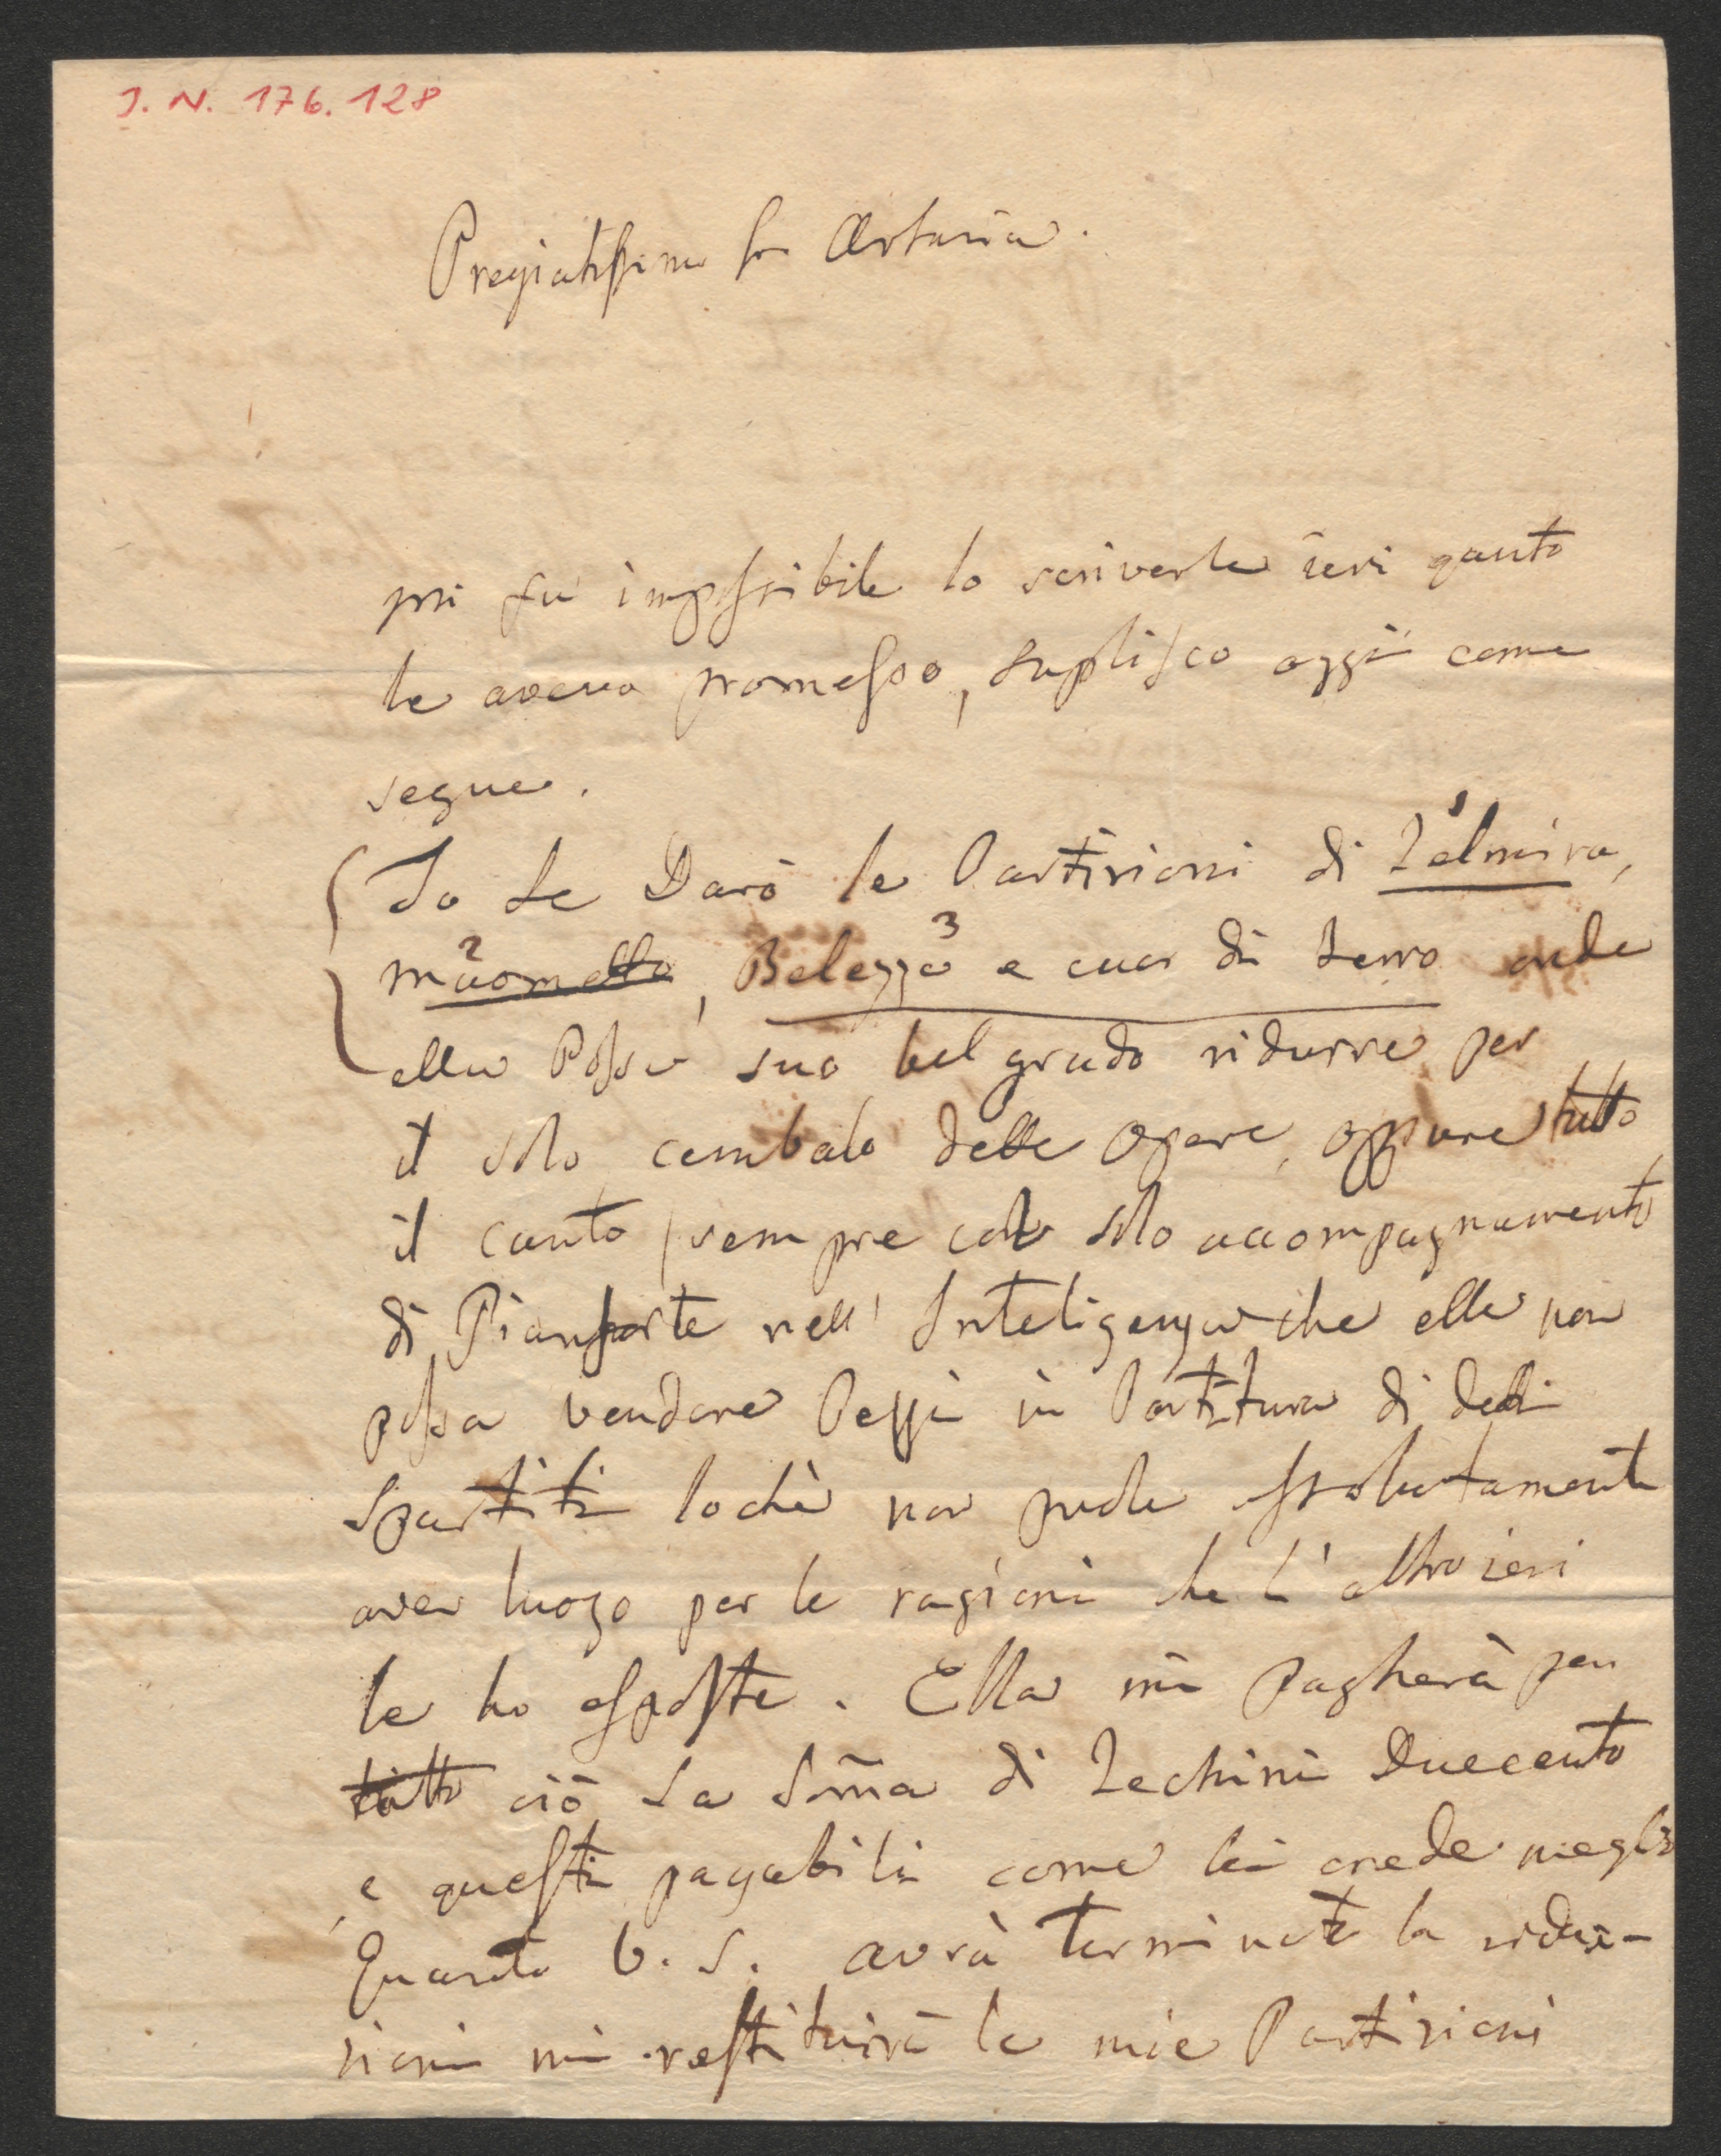 J. N. 176.128
Pregiatissimo Sr Artaria.
mi fu impossibile lo scriverle ieri quanto
le aveva promesso, suplisco oggi come
segue.
Io Le Darò le Partizioni di Zelmira, 1
Maometto 2, Belezza 3 e cuor di Ferro onde
ella Possa suo bel grado ridurre per
il solo cembalo dette opere, oppure tutto
il canto / sempre col solo accompagnamento
di Pianforte nell' Inteligenza che ella non
possa vendere Pezzi in Partitura di detti
Spartiti lochè non puole assolutamente
aver luogo per le ragioni che l'altro ieri
le ho esposte. Ella mi pagherà per
tutto ciò La Soma di Zechini Duecento
e questi pagabili come lei crede meglio
Quando V. S. avrà terminate la ridu-
zioni mi restituirà le mie Partizioni